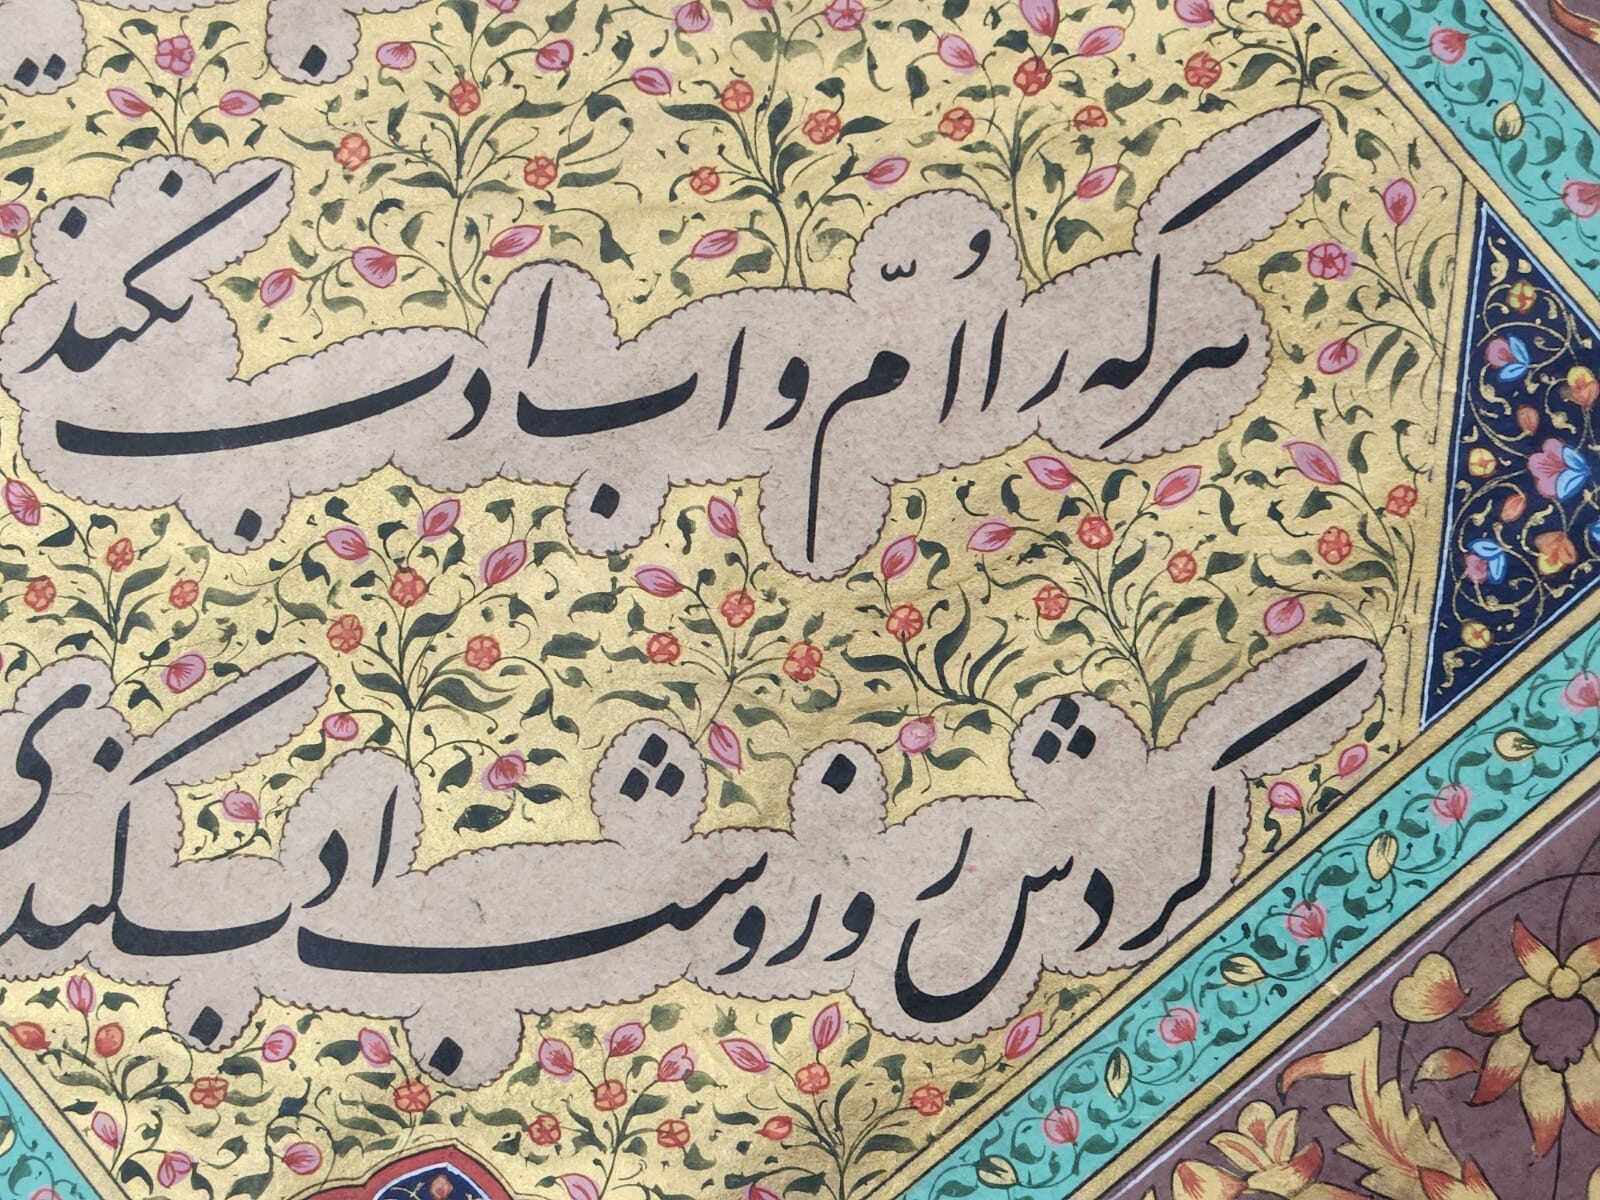 هرکه را اُمّ و اب ادب نکند
کردش روز و شب ادبکند